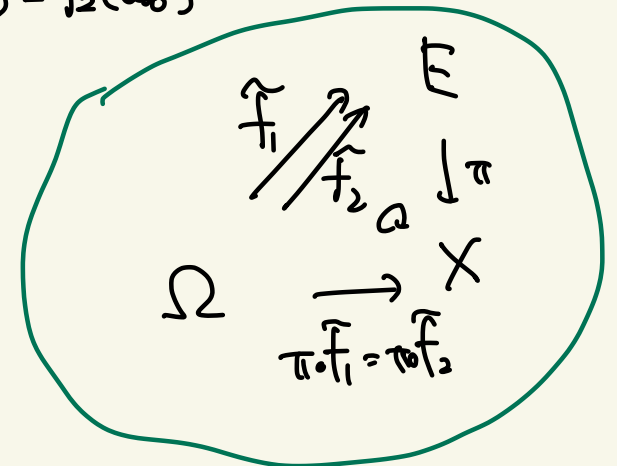 = f̃₂(ω₀)
E
f̃₁
f̃₂
π
Ω
X
π∘f̃₁ = π∘f̃₂